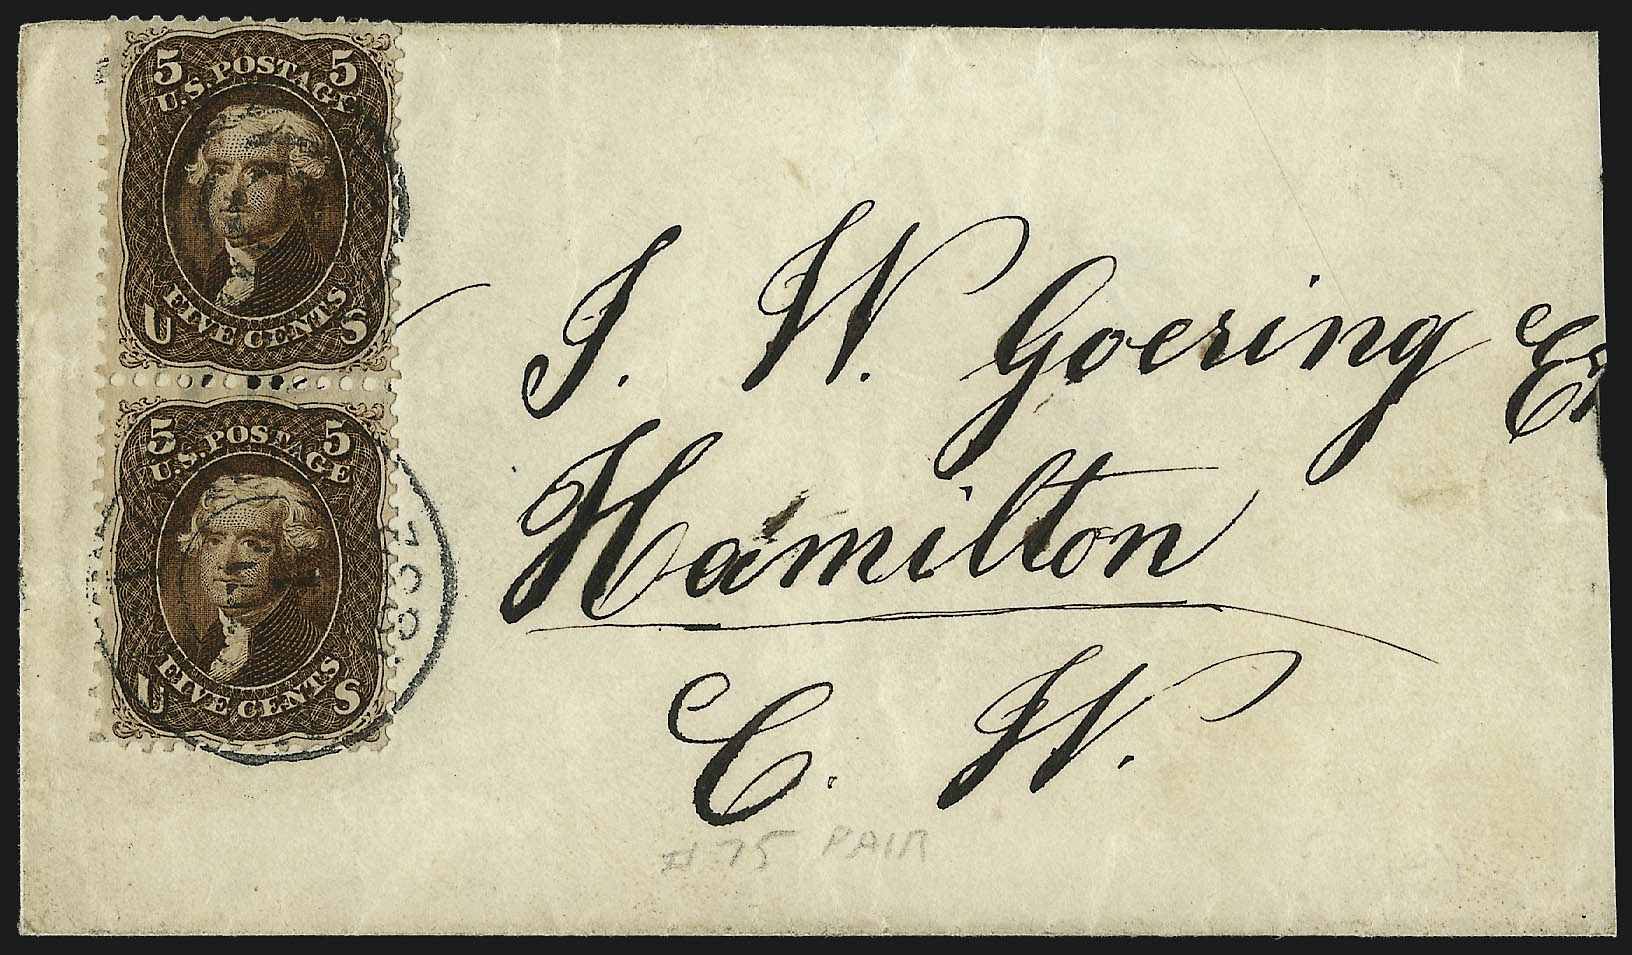 5 5
U.S. POSTAGE
FIVE CENTS
U S
5 5
U.S. POSTAGE
FIVE CENTS
U S
J. W. Goering
Hamilton
C. W.
# 75 PAIR